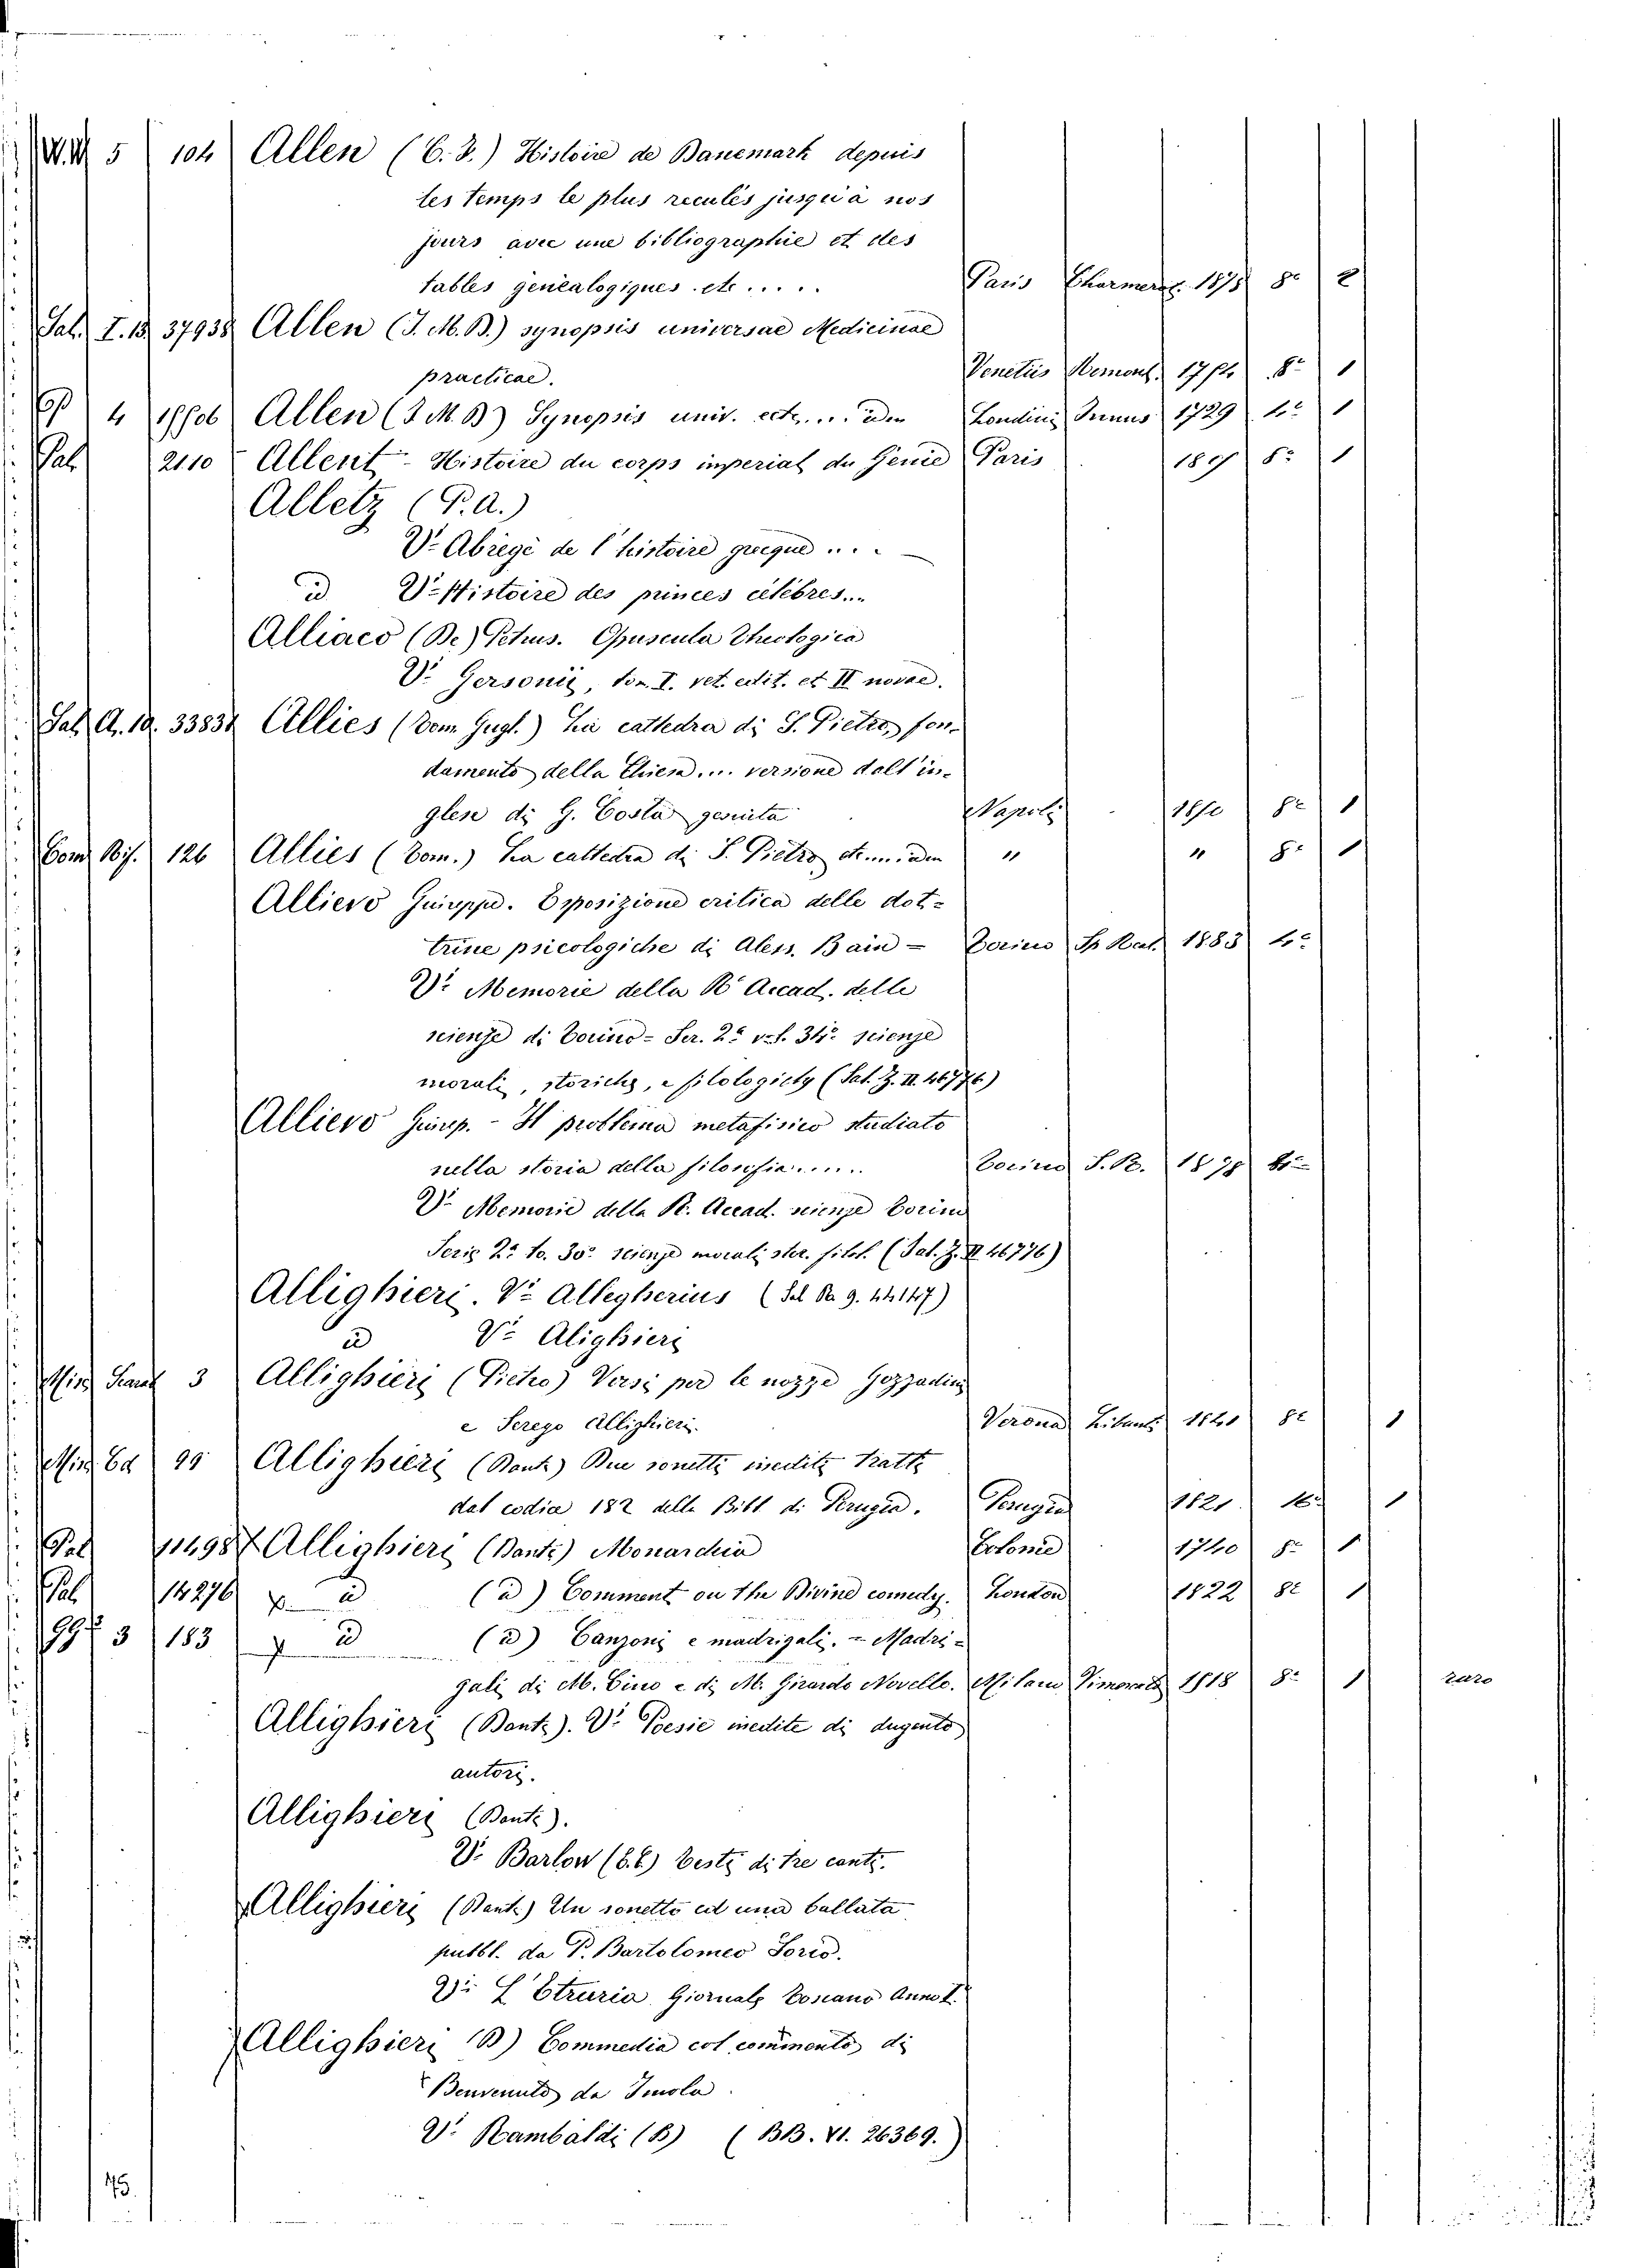 5 104 Allen (C. F.) Histoire de Danemark depuis
les temps le plus reculés jusqu'à nos
jours avec une bibliographie et des
tables genéalogiques. etc..... Paris 1878 8° 2
Sal. I. 13 37938 Allen (J. M. B.) synopsis universae Medicinae
practicae. Venetiis 8° 1
4 Allen (J M. B) Synopsis univ. ect.... idm Londini 1729 4° 1
Pal 2110 Allent - Histoire du corps imperial du Genie Paris 8° 1
Alletz (P. A.)
V. Abregé de l'histoire grecque ...
id V. Histoire des princes célèbres...
Alliaco (De) Petrus. Opuscula Theologica
V. Gersonii, to. I. vet. edit. et II novae.
Sal. A. 19. 33834 Allies (Tom. Gugl.) La cattedra di S. Pietro, fon-
damento della Chiesa.... versione dall'in-
glese di G. Costa gesuita Napoli 8° 1
Com Bif. 126 Allies (Tom.) La cattedra di S. Pietro etc.... idm " " 8° 1
Allievo Giuseppe. Esposizione critica delle dot-
trine psicologiche di Aless. Bain = Torino 1883 4°
V. Memorie della R. Accad. delle
scienze di Torino = Ser. 2ª vol. 34° scienze
morali, storiche, e filologiche (Sal. Z. II. 46776)
Allievo Giusep. - Il problema metafisico studiato
nella storia della filosofia...... Torino S. R. 1878 4°
V. Memorie della R. Accad. scienze Torino
Serie 2ª to. 30° scienze morali stor. filol. (Sal. Z. II 46776)
Allighieri. V. Allegherius (Sal Ba 9. 44147)
id V. Alighieri
3 Allighieri (Pietro) Versi per le nozze Gozzadini
e Serego Allighieri. Verona Libanti 8° 1
Misc Ed 99 Allighieri (Dante) Due sonetti inediti tratti
dal codice 182 della Bibl di Perugia. Perugia 1
Pal 11498 Allighieri (Dante) Monarchia Colonie 1740 8° 1
Pal 14276 id (id) Comment on the Divine comedy. London 1822 8° 1
99 3 183 id (id) Canzoni e madrigali. = Madri-
gali di M. Cino e di M. Girardo Novello. Milano 8° 1 raro
Allighieri (Dante). V. Poesie inedite di dugento
autori.
Allighieri (Dante).
V. Barlow (E. C.) Testi di tre canti.
Allighieri (Dante) Un sonetto ed una ballata
pubbl. da P. Bartolomeo Sorio.
V. L'Etruria. Giornale Toscano Anno I.
Allighieri (D) Commedia col commento di
Benvenuto da Imola.
V. Rambaldi (B) (BB. VI. 26369.)
45.